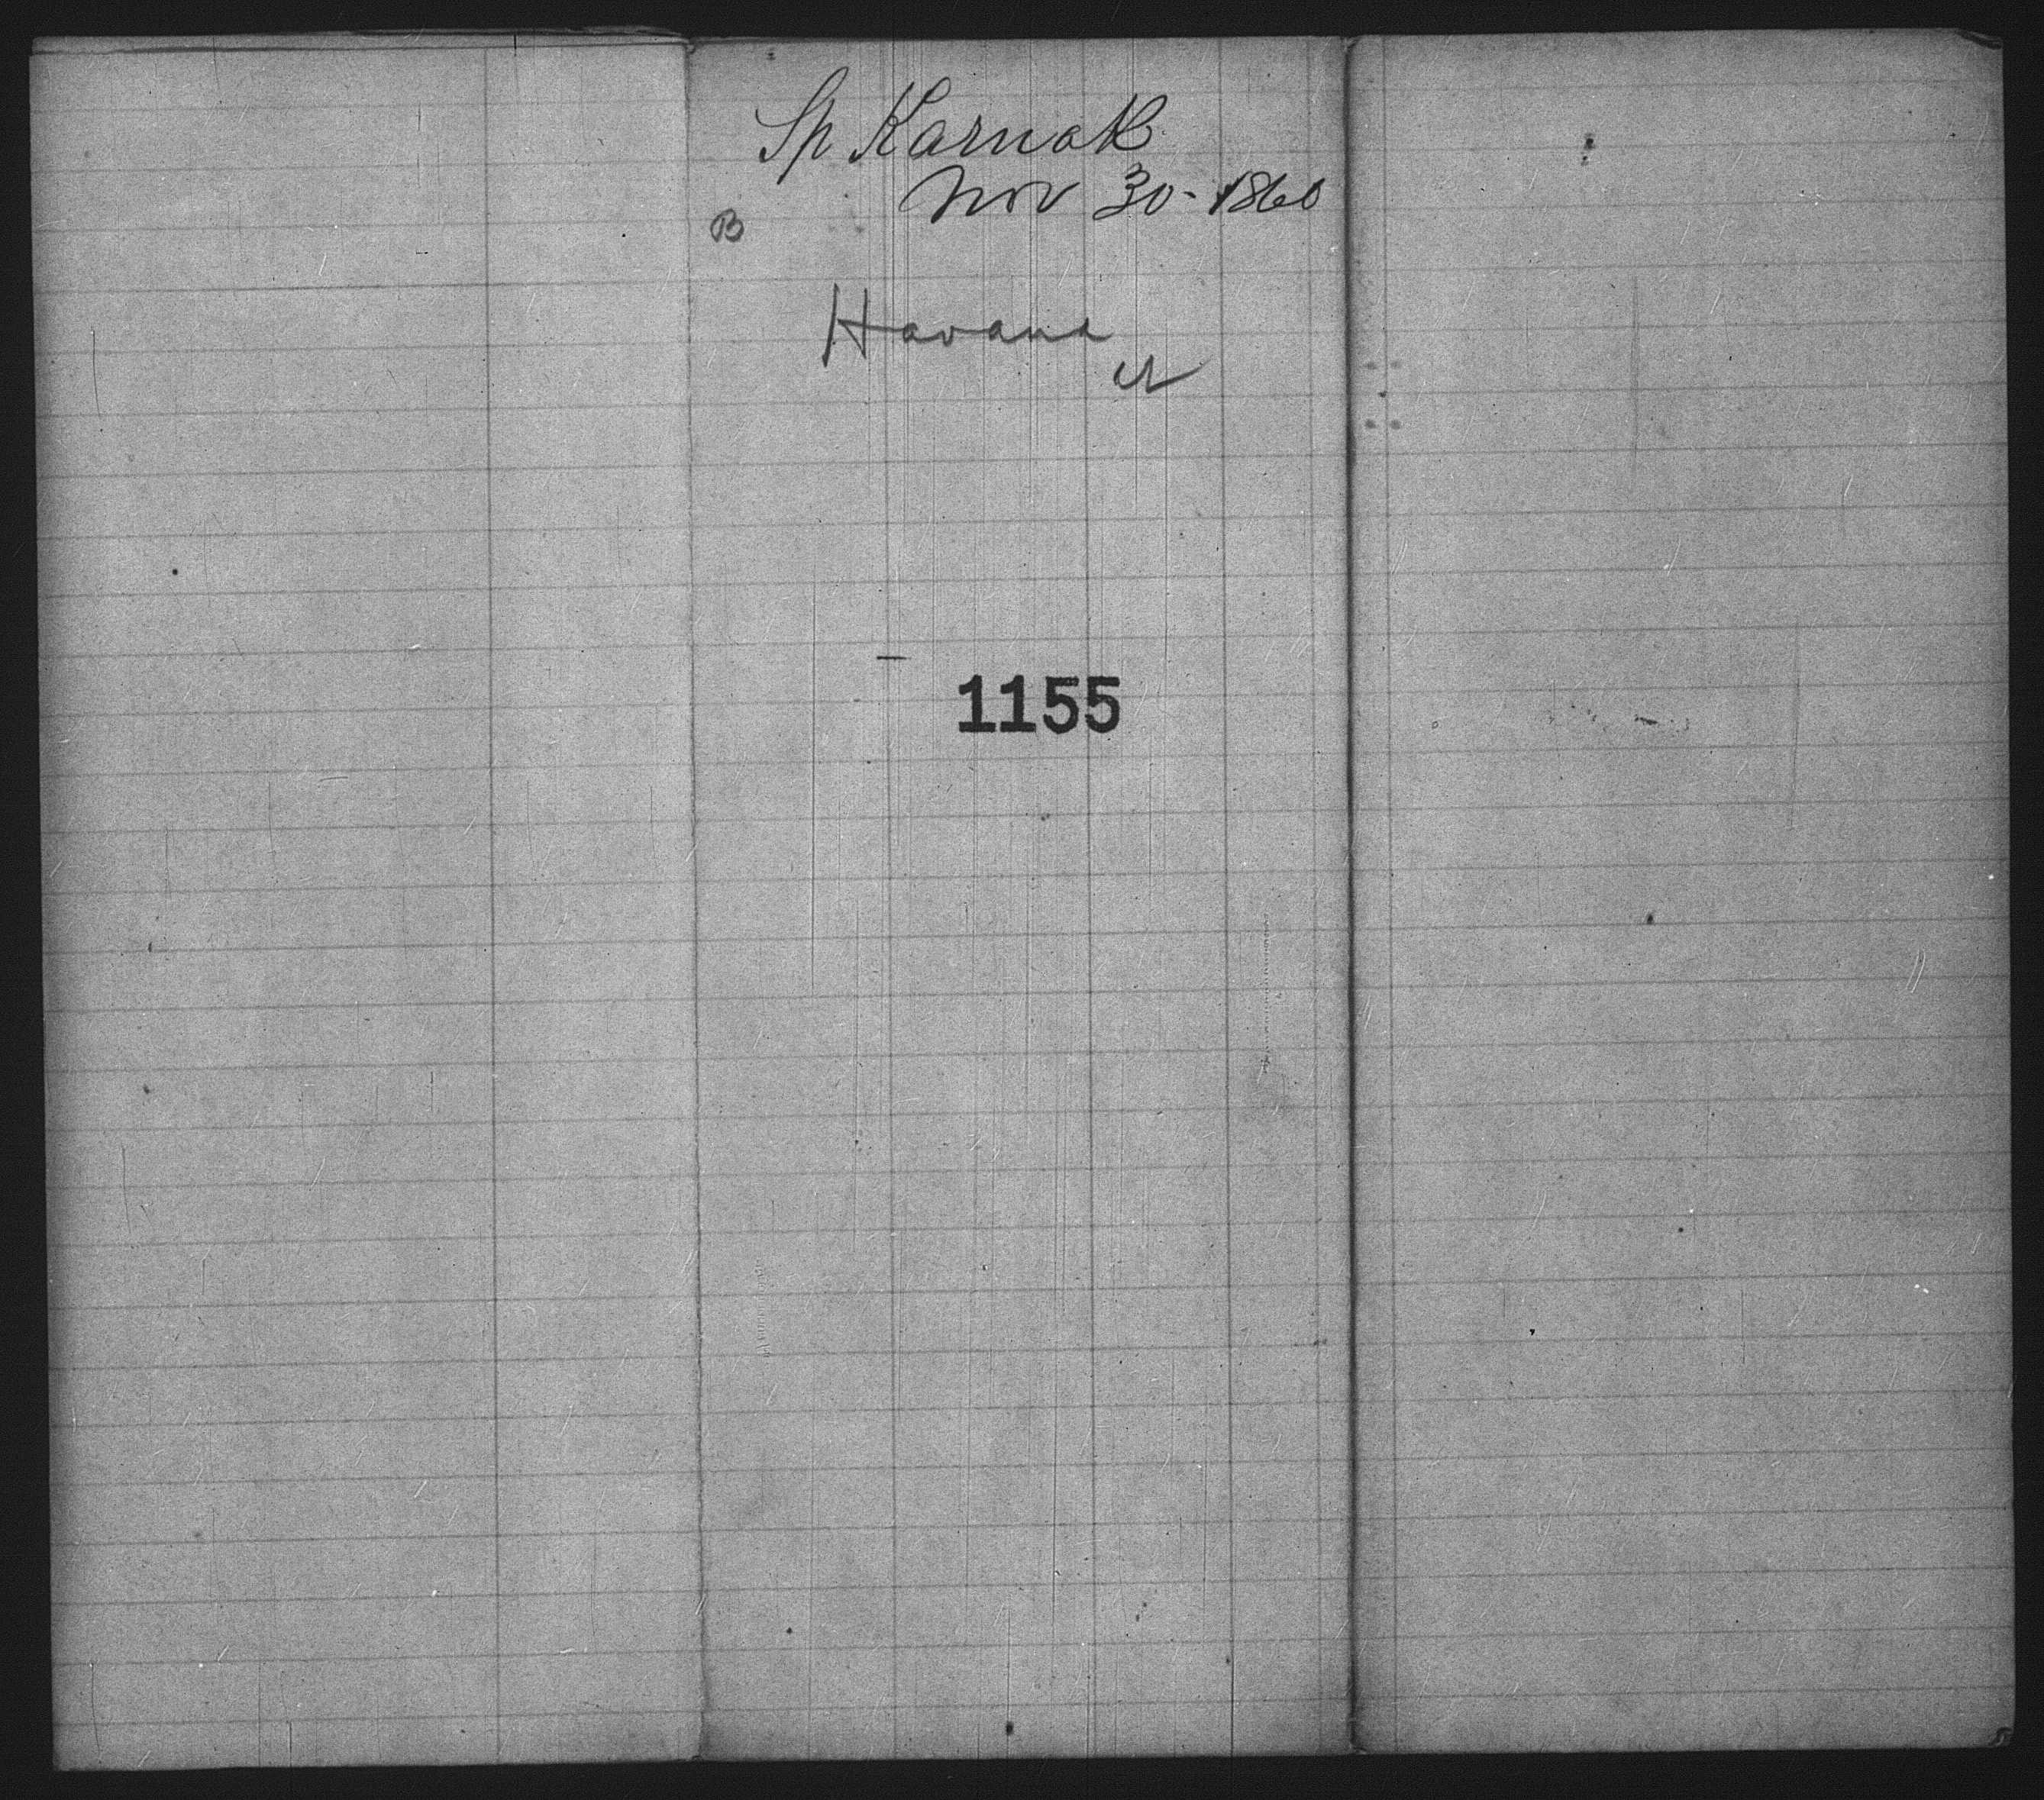 Sp Karnak
Nov 30-1860
B
Havana
1155